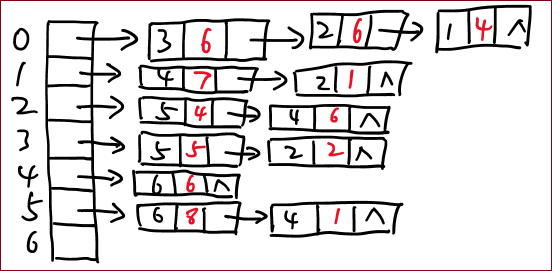 0 3 6 2 6 1 4 ∧
1 4 7 2 1 ∧
2 5 4 4 6 ∧
3 5 5 2 2 ∧
4 6 6 ∧
5 6 8 4 1 ∧
6